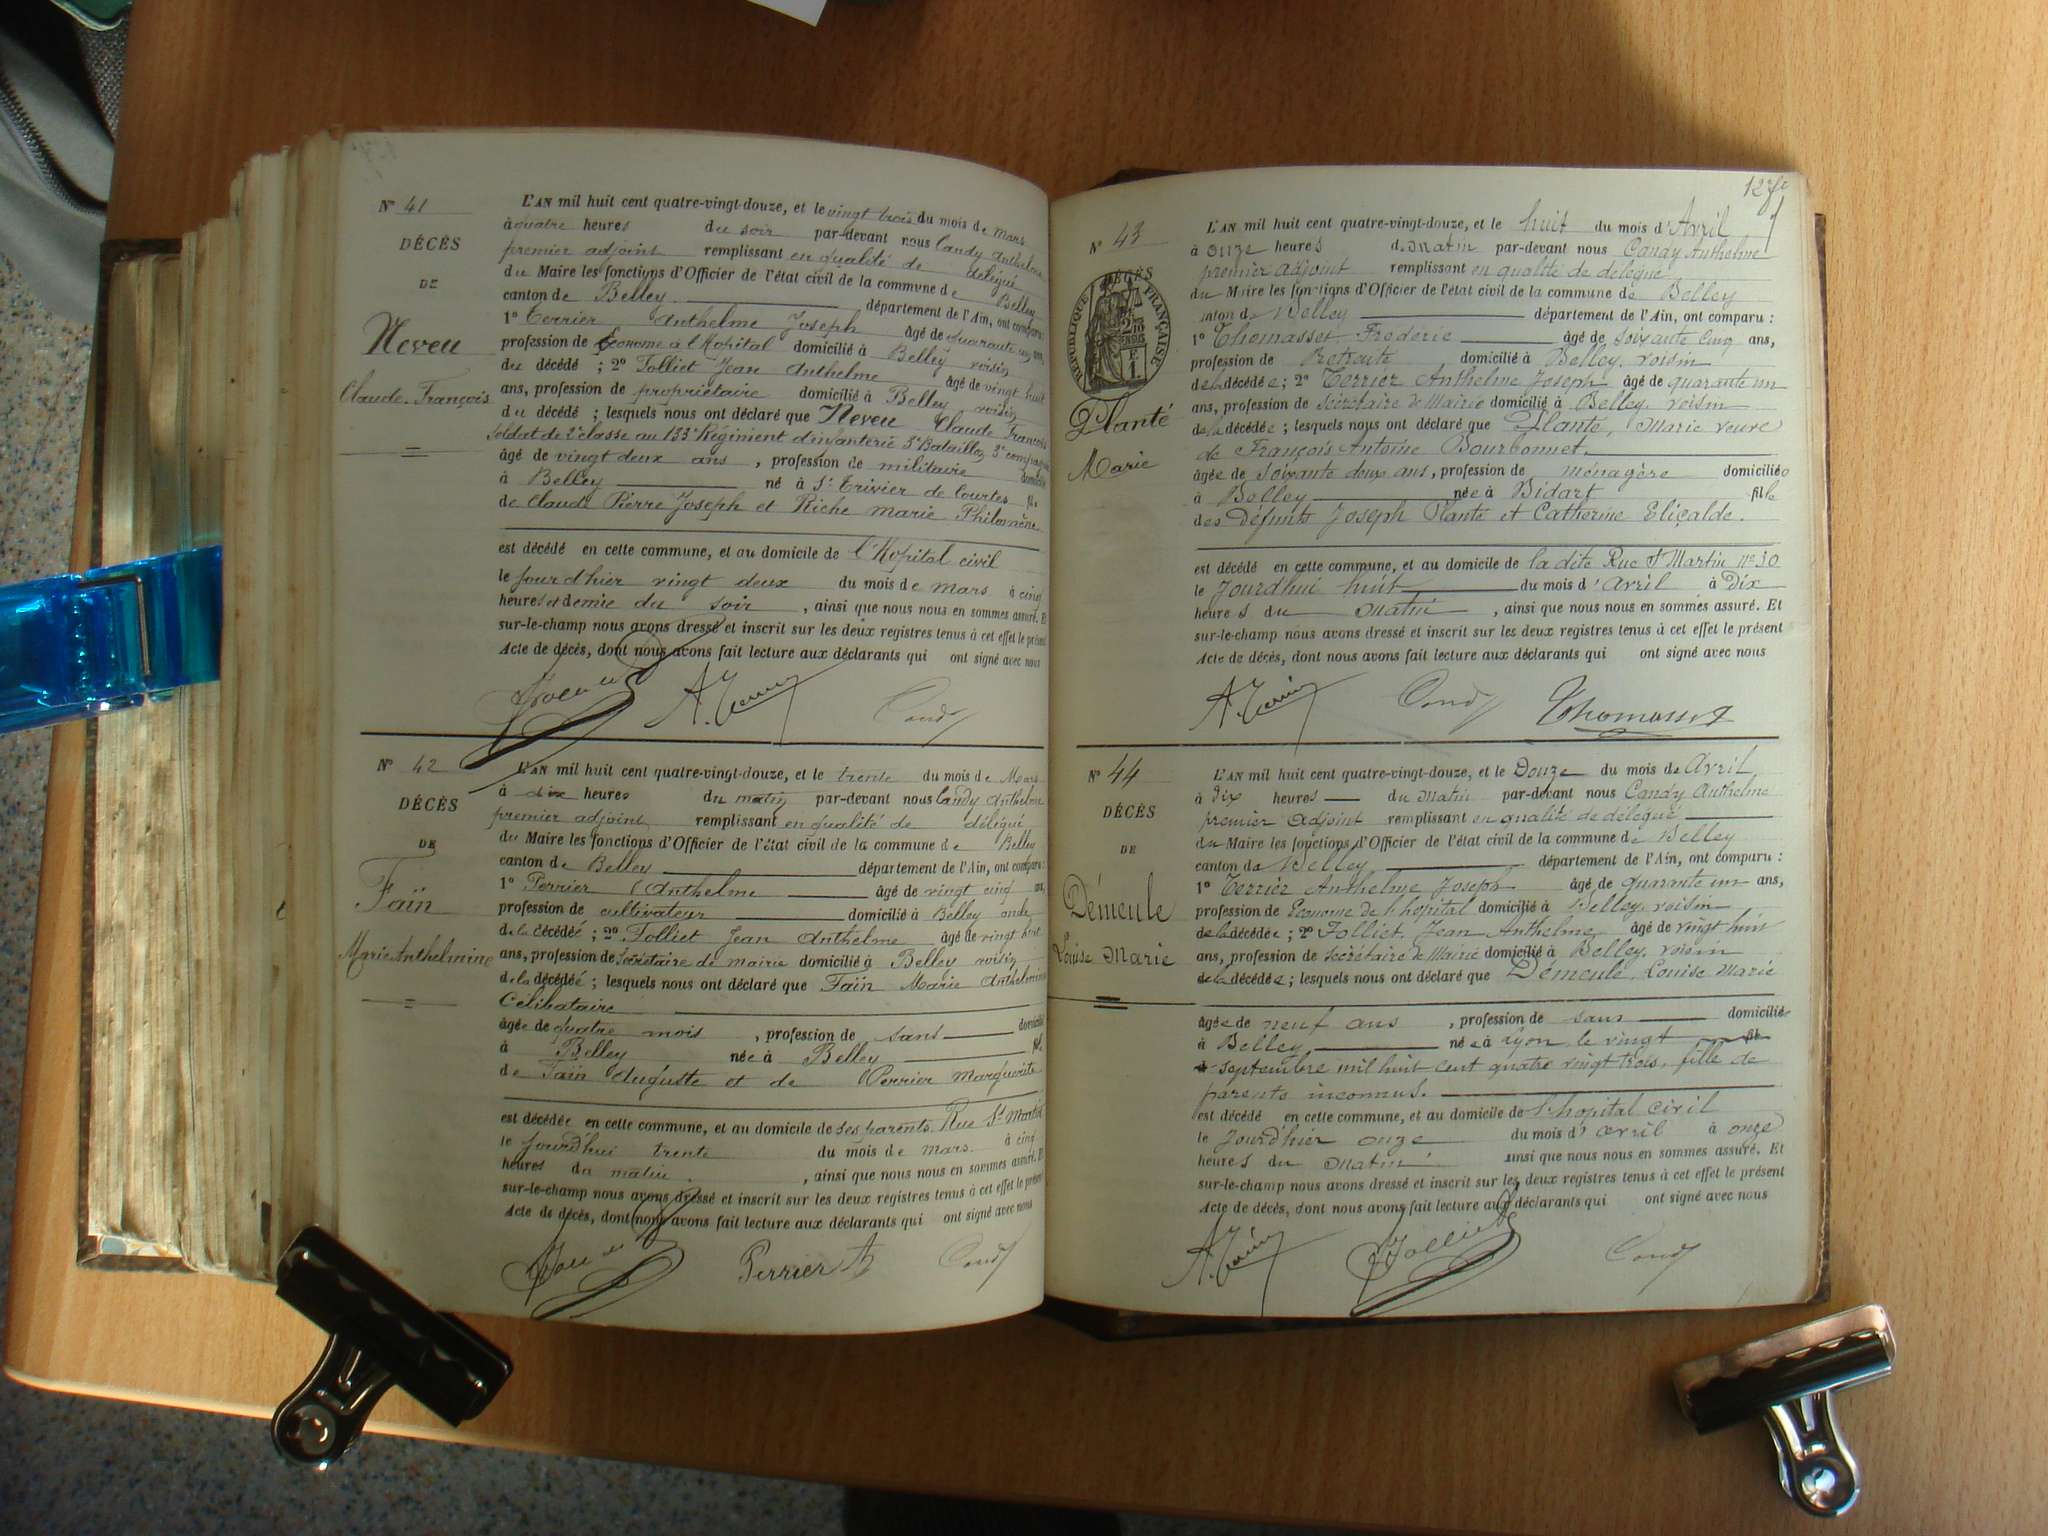 N° 41
DÉCÈS
DE
Neveu
Claude-François
L'AN mil huit cent quatre-vingt-douze, et le vingt trois du mois de mars
à quatre heures du soir par-devant nous Candy Anthelme
premier adjoint remplissant en qualité de délégué
du Maire les fonctions d'Officier de l'état civil de la commune de Belley
canton de Belley département de l'Ain, ont comparu :
1° Terrier Anthelme Joseph âgé de quarante un ans,
profession de Econome à l'Hopital domicilié à Belley voisin
du décédé ; 2° Folliet Jean Anthelme âgé de vingt huit
ans, profession de propriétaire domicilié à Belley voisin
du décédé ; lesquels nous ont déclaré que Neveu Claude François
soldat de 2e classe au 133e Régiment d'infanterie 3e Bataillon 3e compagnie
âgé de vingt deux ans , profession de militaire domicilié
à Belley né à St Trivier de Courtes fils
de Claude Pierre Joseph et Riche Marie Philomène
est décédé en cette commune, et au domicile de l'Hopital civil
le jour d'hier vingt deux du mois de mars à cinq
heures et demie du soir , ainsi que nous nous en sommes assuré. Et
sur-le-champ nous avons dressé et inscrit sur les deux registres tenus à cet effet le présent
Acte de décès, dont nous avons fait lecture aux déclarants qui ont signé avec nous
Candy
N° 42
DÉCÈS
DE
Faïn
Marie Anthelmine
L'AN mil huit cent quatre-vingt-douze, et le trente du mois de Mars
à dix heures du matin par-devant nous Candy Anthelme
premier adjoint remplissant en qualité de délégué
du Maire les fonctions d'Officier de l'état civil de la commune de Belley
canton de Belley département de l'Ain, ont comparu :
1° Perrier Anthelme âgé de vingt cinq ans,
profession de cultivateur domicilié à Belley oncle
de la décédée ; 2° Folliet Jean Anthelme âgé de vingt huit
ans, profession de Secrétaire de mairie domicilié à Belley voisin
de la décédée ; lesquels nous ont déclaré que Faïn Marie Anthelmine
Célibataire
âgée de quatre mois , profession de sans domicilié
à Belley née à Belley fille
de Faïn Auguste et de Perrier Marguerite
est décédée en cette commune, et au domicile de ses parents Rue St Martin
le jourd'hui trente du mois de mars à cinq
heures du matin , ainsi que nous nous en sommes assuré. Et
sur-le-champ nous avons dressé et inscrit sur les deux registres tenus à cet effet le présent
Acte de décès, dont nous avons fait lecture aux déclarants qui ont signé avec nous
Perrier A Candy
N° 43
DÉCÈS
RÉPUBLIQUE FRANÇAISE
Planté
Marie
L'AN mil huit cent quatre-vingt-douze, et le huit du mois d'Avril
à onze heures du Matin par-devant nous Candy Anthelme
premier adjoint remplissant en qualité de délégué
du Maire les fonctions d'Officier de l'état civil de la commune de Belley
canton de Belley département de l'Ain, ont comparu :
1° Thomasset Frederic âgé de soixante cinq ans,
profession de Retraité domicilié à Belley, voisin
de la décédée ; 2° Terrier Anthelme Joseph âgé de quarante un
ans, profession de Secrétaire de Mairie domicilié à Belley, voisin
de la décédée ; lesquels nous ont déclaré que Planté, Marie veuve
de François Antoine Bourbonnet.
âgée de soixante douze ans, profession de ménagère domiciliée
à Belley née à Bidart fille
des Défunts Joseph Planté et Catherine Eliçalde.
est décédé en cette commune, et au domicile de la dite Rue St Martin n° 30
le jourd'hui huit du mois d'Avril à Dix
heures du Matin , ainsi que nous nous en sommes assuré. Et
sur-le-champ nous avons dressé et inscrit sur les deux registres tenus à cet effet le présent
Acte de décès, dont nous avons fait lecture aux déclarants qui ont signé avec nous
Candy Thomasset
N° 44
DÉCÈS
DE
Démeule
Louise Marie
L'AN mil huit cent quatre-vingt-douze, et le Douze du mois de Avril
à Dix heures du Matin par-devant nous Candy Anthelme
premier adjoint remplissant en qualité de délégué
du Maire les fonctions d'Officier de l'état civil de la commune de Belley
canton de Belley département de l'Ain, ont comparu :
1° Terrier Anthelme Joseph âgé de quarante un ans,
profession de Econome de l'hopital domicilié à Belley, voisin
de la décédée ; 2° Folliet Jean Anthelme âgé de vingt huit
ans, profession de Secrétaire de Mairie domicilié à Belley, voisin
de la décédée ; lesquels nous ont déclaré que Démeule Louise Marie
âgée de neuf ans , profession de sans domiciliée
à Belley née à Lyon le vingt
septembre mil huit cent quatre vingt trois, fille de
parents inconnus.
est décédé en cette commune, et au domicile de l'hopital civil
le jourd'hier onze du mois d'avril à onze
heures du Matin ainsi que nous nous en sommes assuré. Et
sur-le-champ nous avons dressé et inscrit sur les deux registres tenus à cet effet le présent
Acte de décès, dont nous avons fait lecture aux déclarants qui ont signé avec nous
Folliet Candy